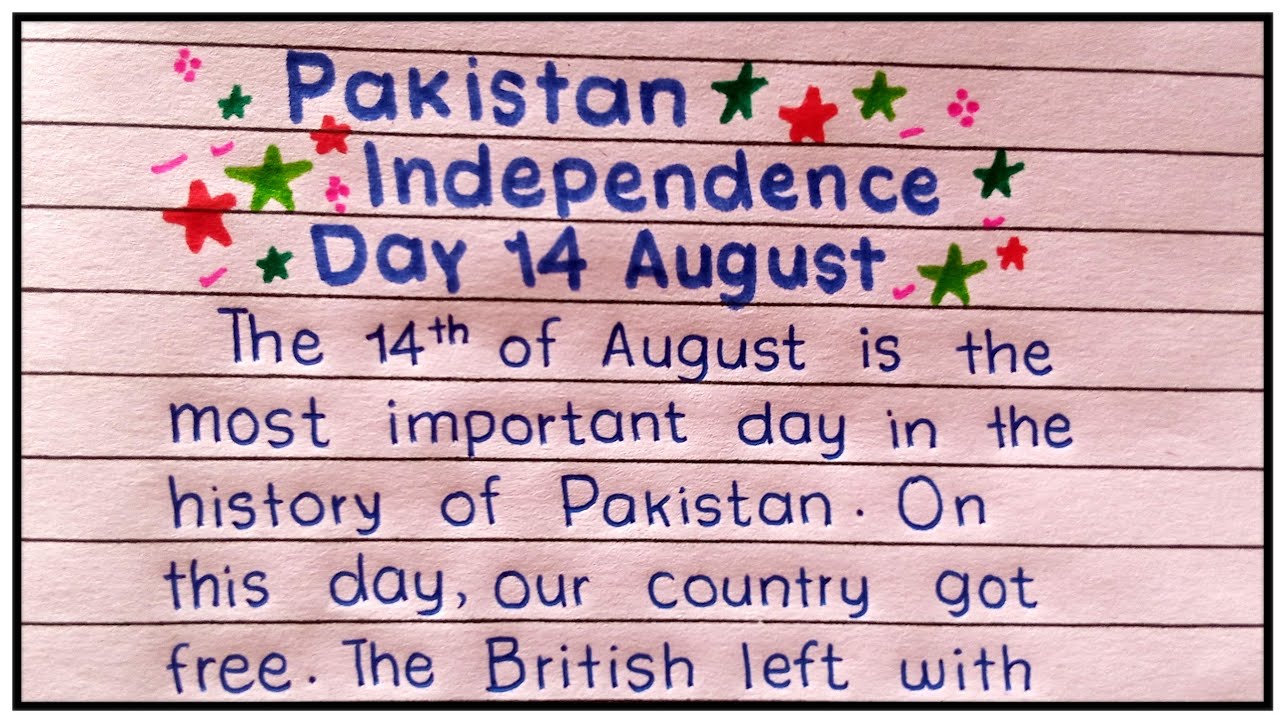 Pakistan
Independence
Day 14 August
The 14th of August is the
most important day in the
history of Pakistan. On
this day, our country got
free. The British left with